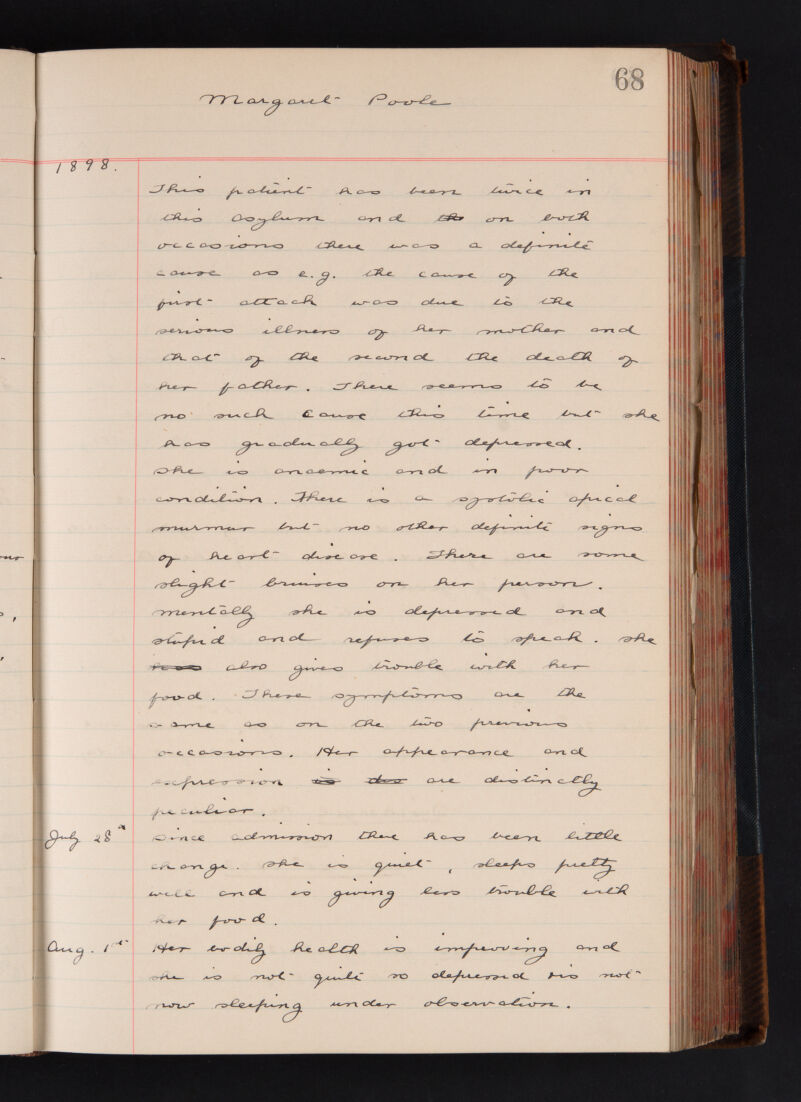 68
Margaret Poole
1898.
This patient has been twice in
this asylum and the on both
occasions there was a definite
cause as e.g. the cause of the
first attack was due to the
serious illness of her mother and
that of the second the death of
her father. There seems to be
no such cause this time but she
has gradually got depressed.
She is anaemic and in poor
condition. There is a systolic apical
murmur but no other definite signs
of heart disease. There are some
slight bruises on her person.
Mentally she is depressed and
stupid and refuses to speak. She
also gives trouble with her
food. These symptoms are the
same as on the two previous
occasions. Her appearance and
expression is are distinctly
peculiar.
July 28th Since admission there has been little
change. She is quiet, sleeps pretty
well and is giving less trouble with
her food.
Aug. 1st Her bodily health is improving and
she is not quite so depressed & is not
now sleeping under observation.